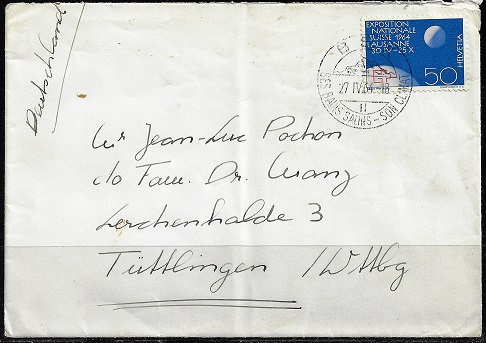 Deutschland
EXPOSITION
NATIONALE
SUISSE 1964
LAUSANNE
30.IV-25.X
HELVETIA
50
B
27.IV.64-18
SES BAINS SALINS - SON CLIMAT
Mr Jean-Luc Pochon
c/o Fam. Dr. Manz
Lerchenhalde 3
Tüttlingen /Wttbg